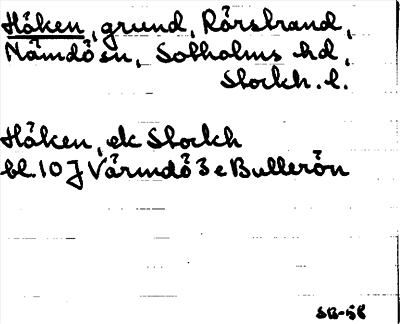 Håken, grund, Rörstrand,
Nämdö sn, Sotholms hd,
Stockh. l.
Håken, ek Stockh
bl. 10 J Värmdö 3 e Bullerön
SB-58